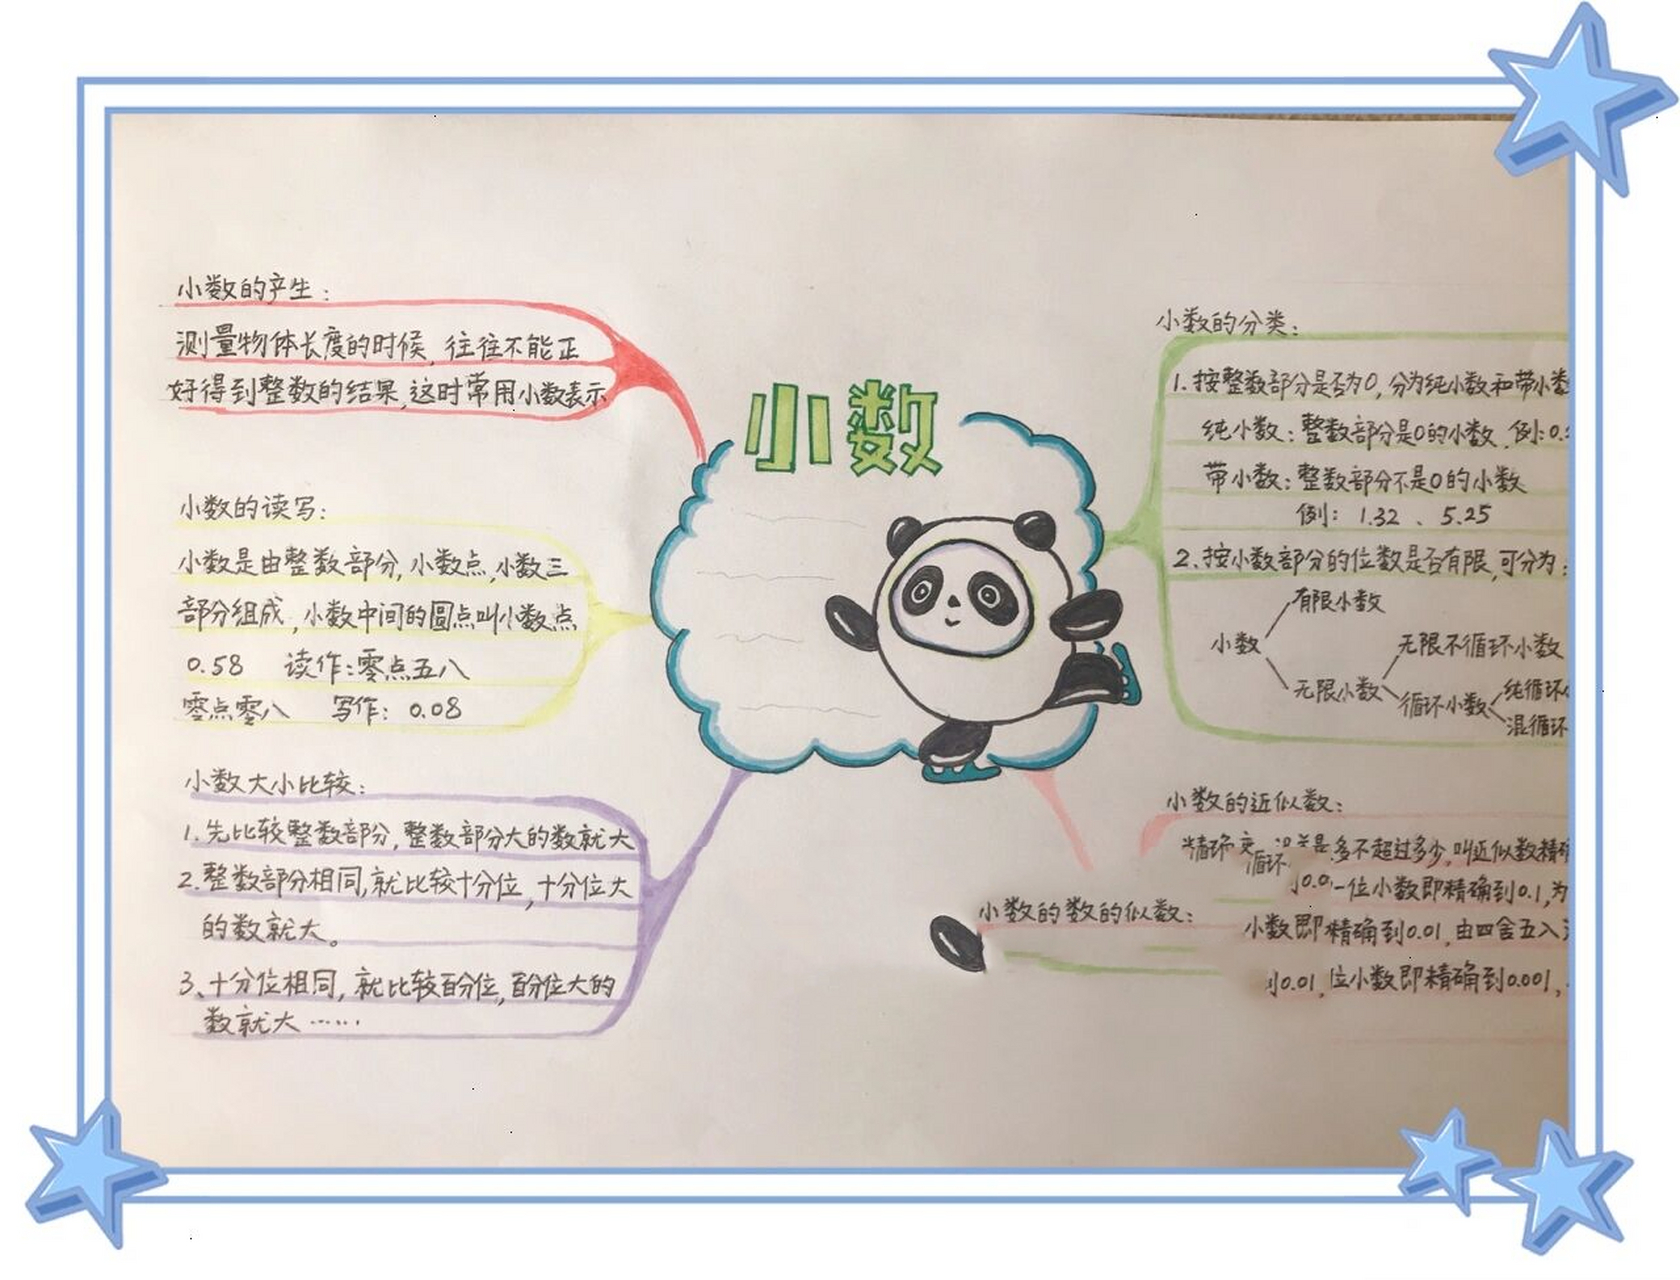 小数
小数的产生:
测量物体长度的时候,往往不能正
好得到整数的结果,这时常用小数表示
小数的读写:
小数是由整数部分,小数点,小数三
部分组成,小数中间的圆点叫小数点
0.58 读作:零点五八
零点零八 写作: 0.08
小数大小比较:
1.先比较整数部分,整数部分大的数就大
2.整数部分相同,就比较十分位,十分位大
的数就大。
3、十分位相同,就比较百分位,百分位大的
数就大……
小数的分类:
1.按整数部分是否为0,分为纯小数和带小数
纯小数:整数部分是0的小数.例:0.
带小数:整数部分不是0的小数
例: 1.32、5.25
2.按小数部分的位数是否有限,可分为:
有限小数
小数
无限不循环小数
无限小数
循环小数
纯循环
混循环
小数的近似数:
多不超过多少,叫近似数精确
循环
一位小数即精确到0.1,为
小数的数的似数:
小数即精确到0.01,由四舍五入
0.01,位小数即精确到0.001,